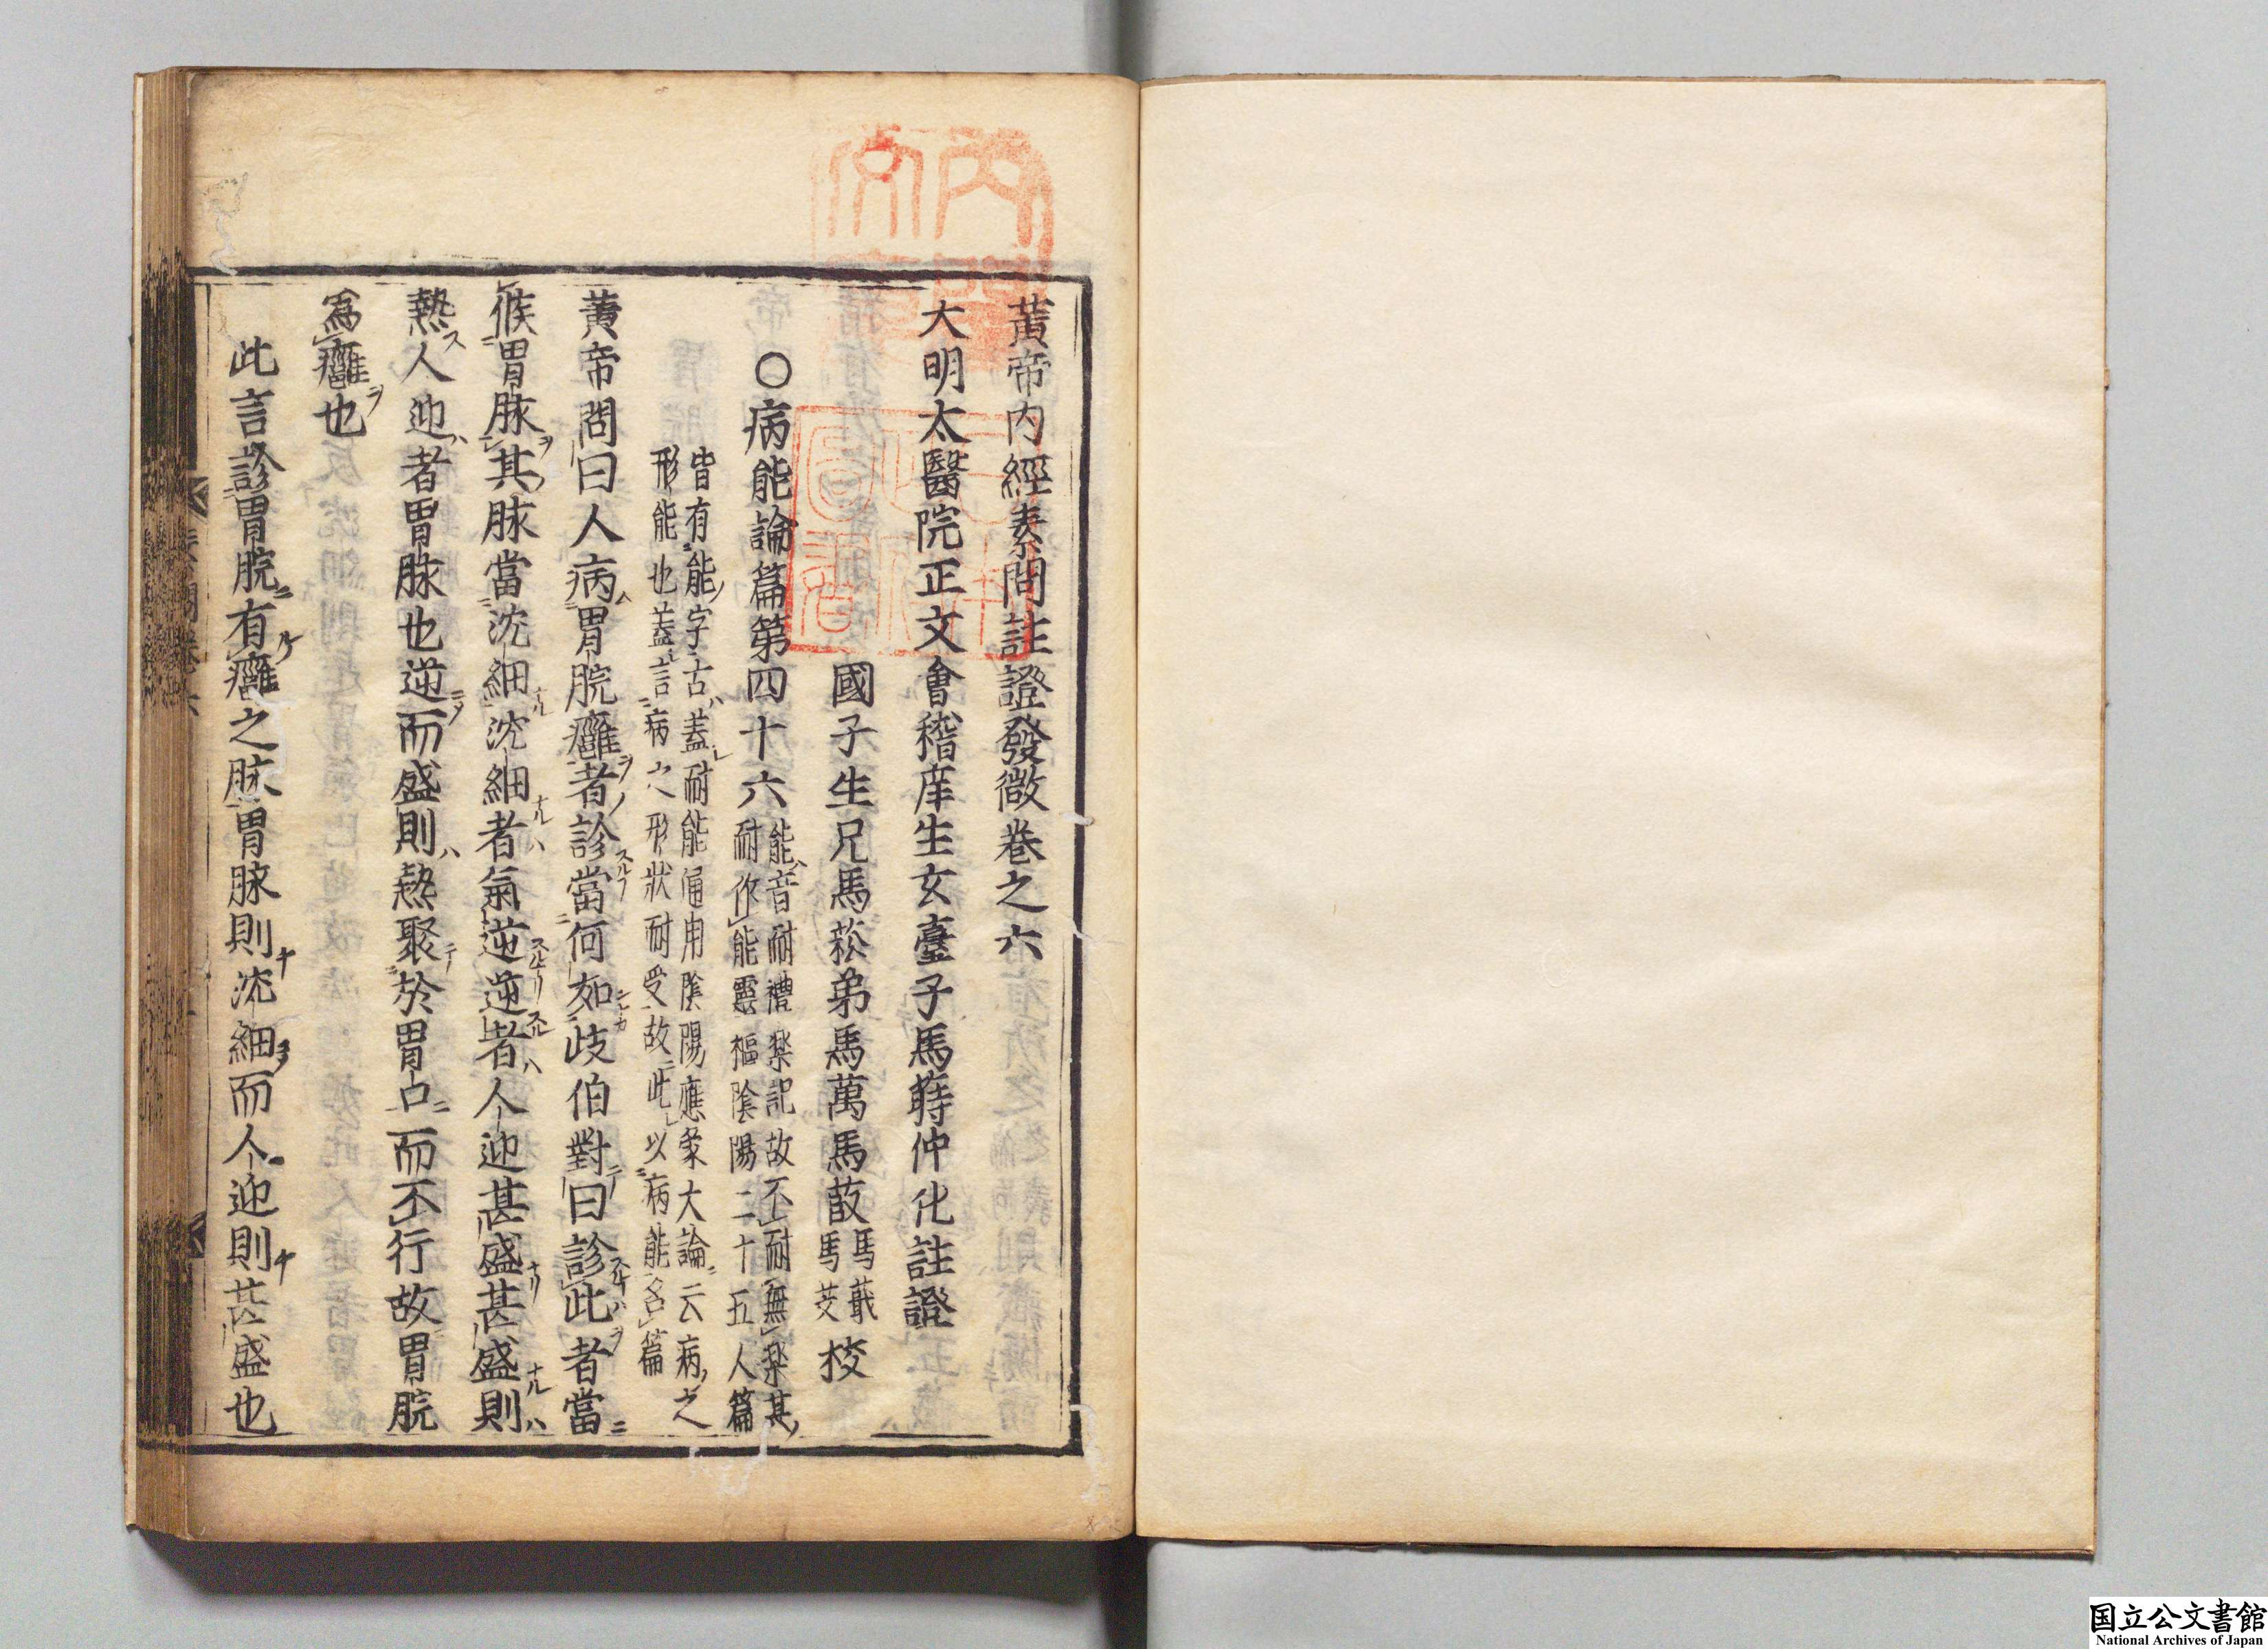 黃帝内經素問註證發微卷之六
大明太醫院正文會稽庠生玄臺子馬蒔仲化註證
國子生兄馬菘弟馬萬馬蔎馬蕺馬芰校
○病能論篇第四十六
能音耐禮樂記故不耐無樂其
耐作能靈樞陰陽二十五人篇
皆有能字古蓋耐能通用陰陽應象大論云病之
形能也蓋言病之形狀耐受故此以病能名篇
黃帝問曰人病胃脘癰者診當何如歧伯對曰診此者當
候胃脉其脉當沈細沈細者氣逆逆者人迎甚盛甚盛則
熱人迎者胃脉也逆而盛則熱聚於胃口而不行故胃脘
爲癰也
此言診胃脘有癰之脉胃脉則沈細而人迎則甚盛也
国立公文書館
National Archives of Japan